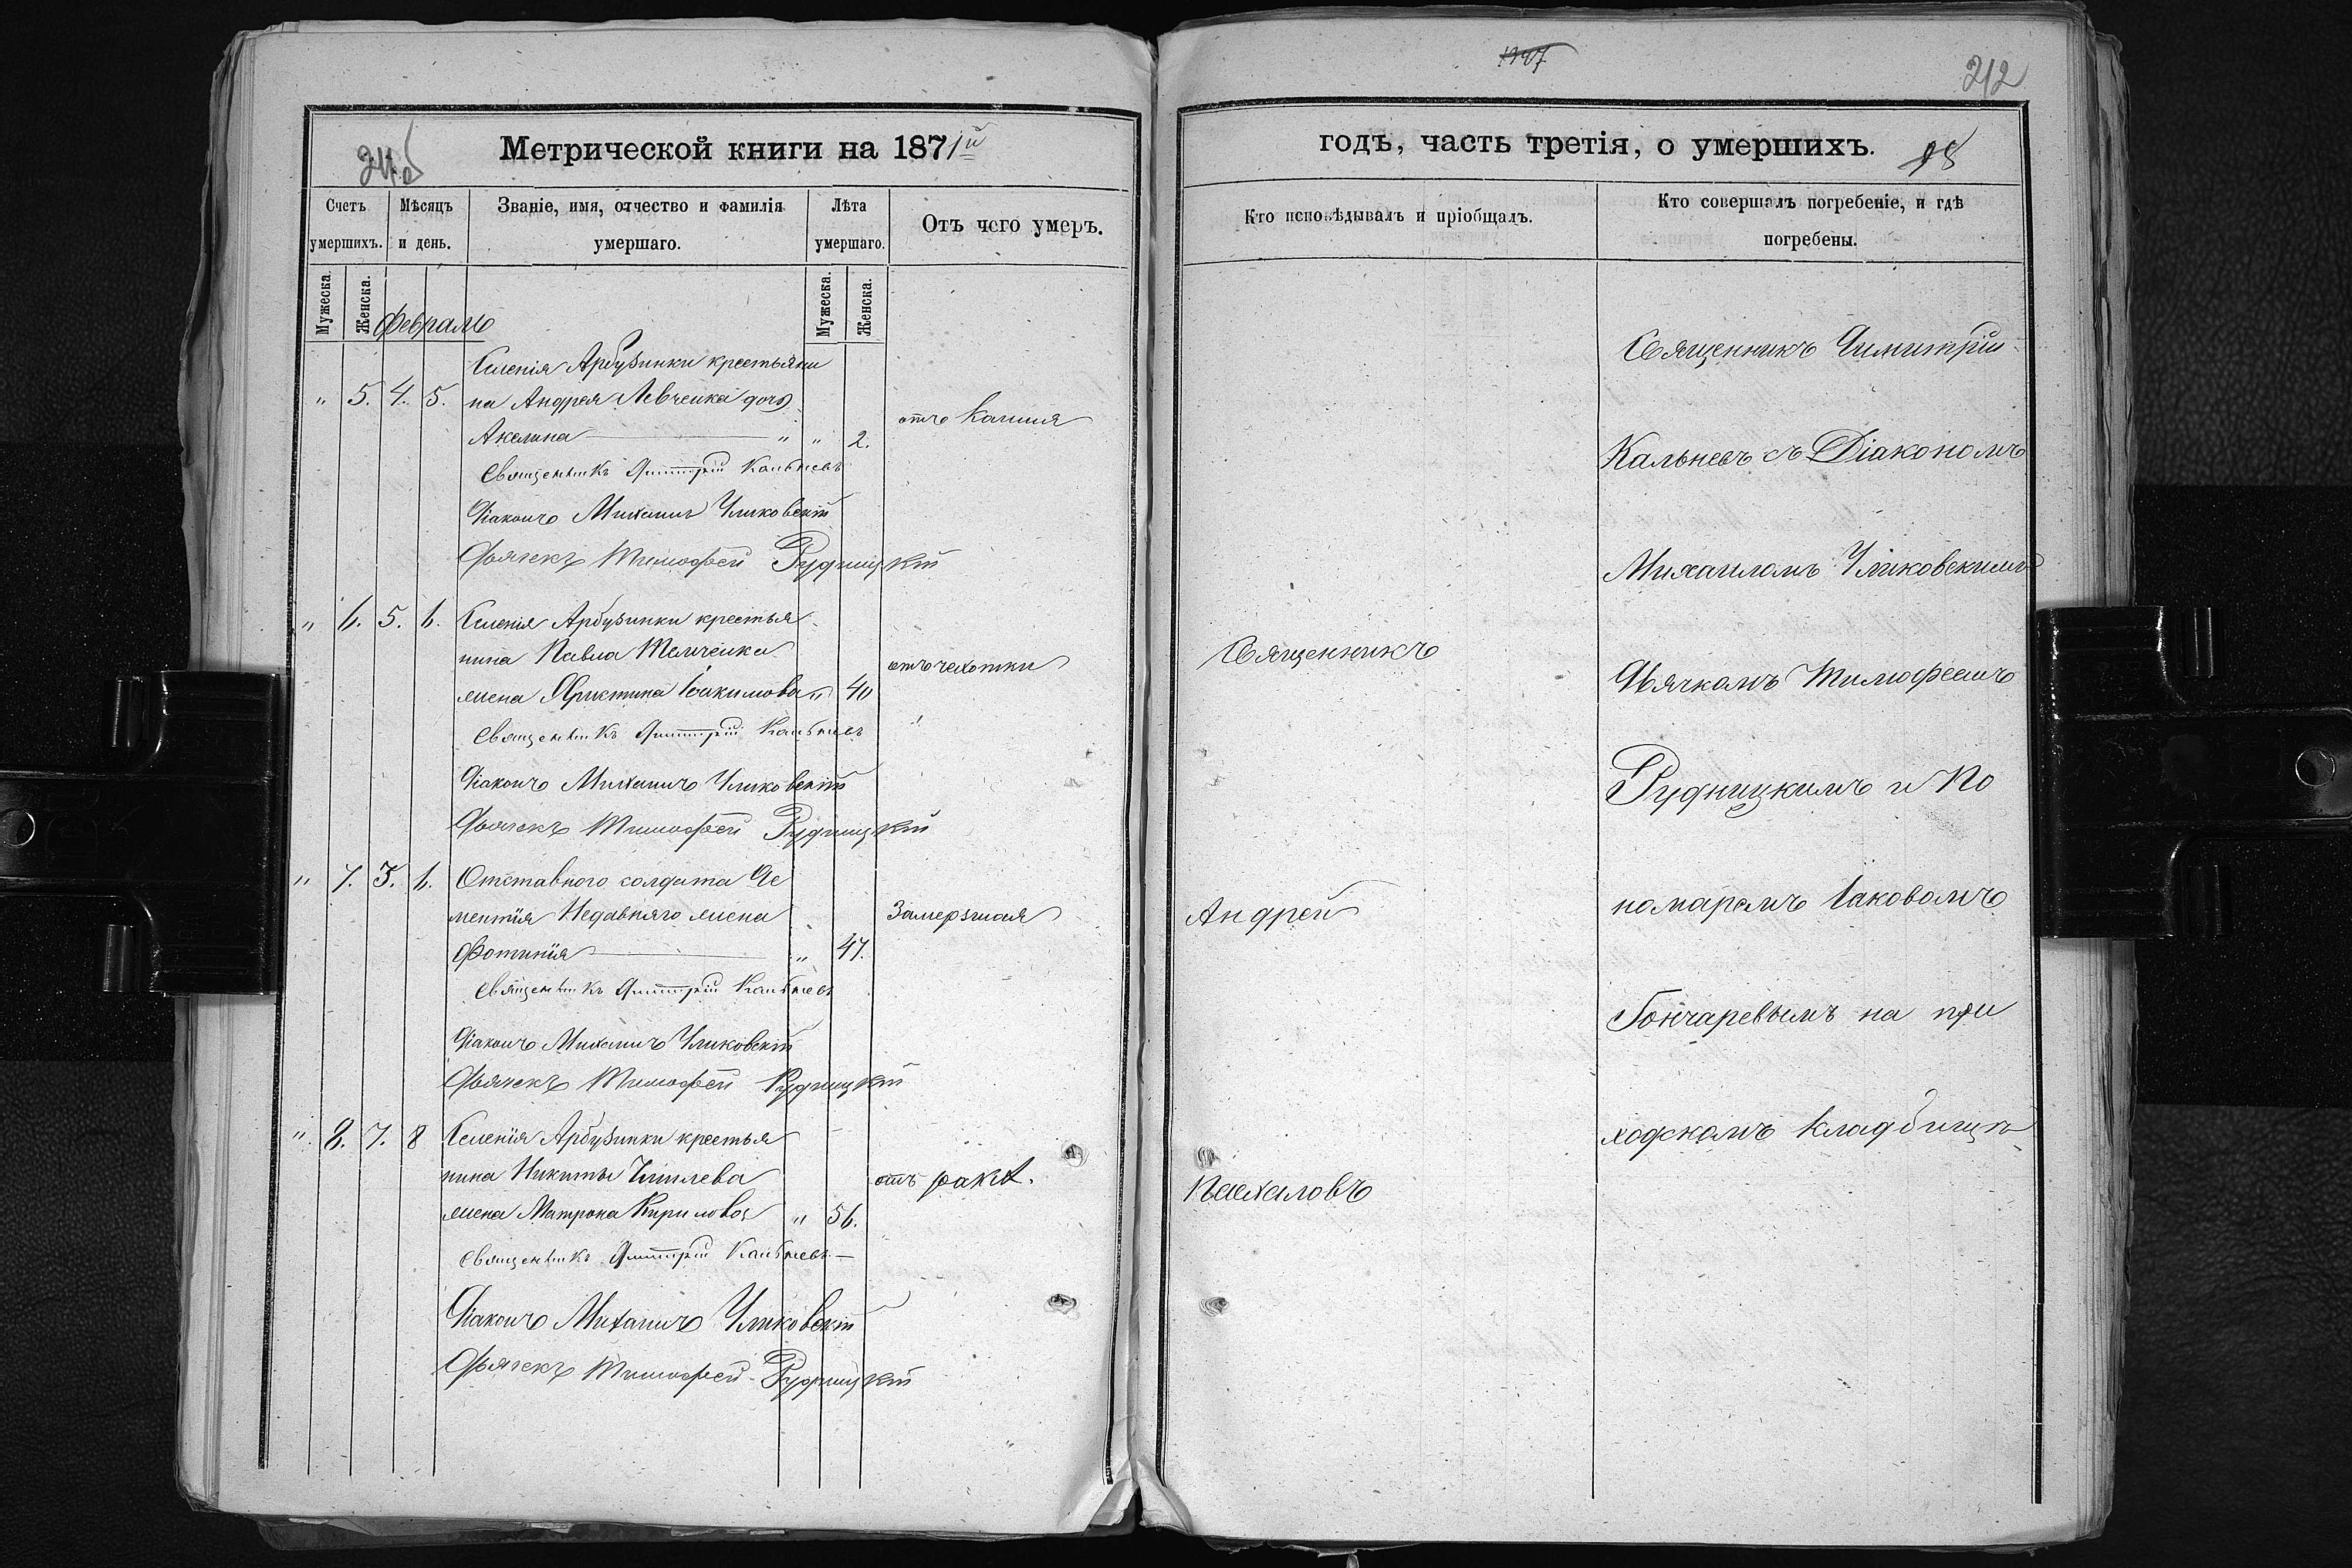 Метрической книги на 1871й
Счетъ умершихъ.
Мѣсяцъ и день.
Званіе, имя, отчество и фамилія умершаго.
Лѣта умершаго.
Отъ чего умеръ.
Мужеска.
Женска.
Мужеска.
Женска.
Февраль
Селенія Арбузинки крестьяни
" 5. 4. 5. на Андрея Левченка дочь
Акилина " " 2. отъ кашля
Священникъ Димитрій Кальневъ
Діаконъ Михаилъ Уликовскій
Дьячекъ Тимофей Рудницкій
" 6. 5. 6. Селенія Арбузинки крестья
нина Павла Темченка отъ чахотки
жена Христина Іоакимова " 40
Священникъ Димитрій Кальневъ
Діаконъ Михаилъ Уликовскій
Дьячекъ Тимофей Рудницкій
" 7. 5. 6. Отставного солдата Де
ментія Недавняго жена Замерзшая
Фотинія " 47.
Священникъ Димитрій Кальневъ
Діаконъ Михаилъ Уликовскій
Дьячекъ Тимофей Рудницкій
" 8. 7. 8 Селенія Арбузинки крестья
нина Никиты отъ рака.
жена Матрона Кирилова " 56.
Священникъ Димитрій Кальневъ
Діаконъ Михаилъ Уликовскій
Дьячекъ Тимофей Рудницкій
212
годъ, часть третія, о умершихъ.
Кто исповѣдывалъ и пріобщалъ.
Кто совершалъ погребеніе, и гдѣ погребены.
Священникъ
Андрей
Пасхаловъ
Священникъ Димитрій
Кальневъ съ Діакономъ
Михаиломъ Уликовскимъ
Дьячкомъ Тимофеемъ
Рудницкимъ и По
номаремъ Іаковомъ
Гончаревымъ на при
ходскомъ кладбищѣ